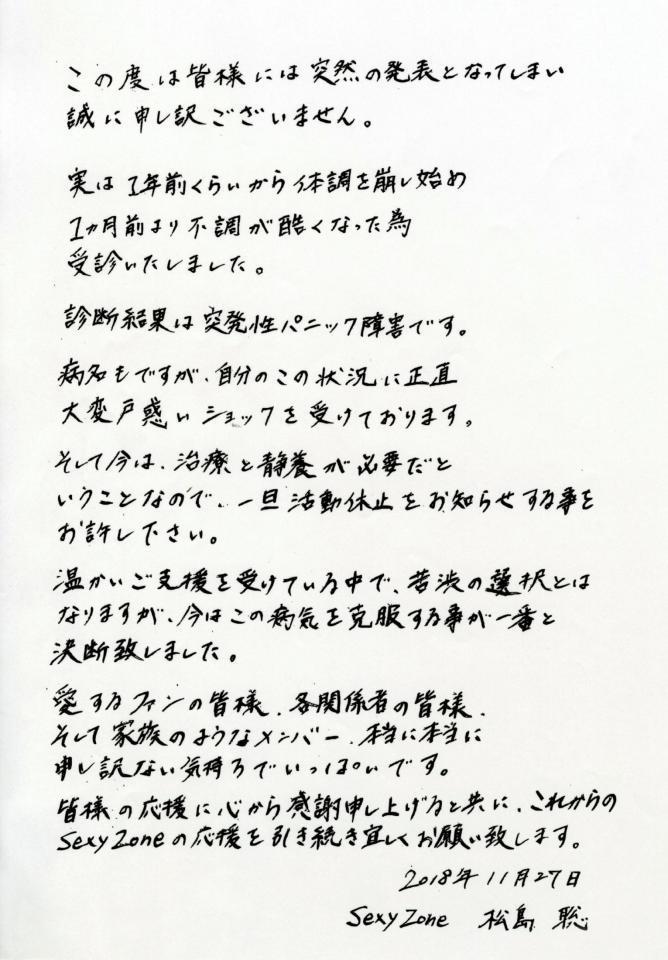 この度は皆様には突然の発表となってしまい
誠に申し訳ございません。
実は1年前くらいから体調を崩し始め
1カ月前より不調が酷くなった為
受診いたしました。
診断結果は突発性パニック障害です。
病名もですが、自分のこの状況に正直
大変戸惑いショックを受けております。
そして今は、治療と静養が必要だと
いうことなので、一旦活動休止をお知らせする事を
お許し下さい。
温かいご支援を受けている中で、苦渋の選択とは
なりますが、今はこの病気を克服する事が一番と
決断致しました。
愛するファンの皆様、各関係者の皆様、
そして家族のようなメンバー、本当に本当に
申し訳ない気持ちでいっぱいです。
皆様の応援に心から感謝申し上げると共に、これからの
Sexy Zoneの応援を引き続き宜しくお願い致します。
2018年11月27日
Sexy Zone 松島 聡